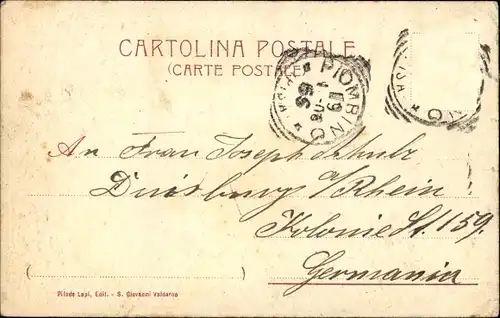 CARTOLINA POSTALE
(CARTE POSTALE)
PIOMBINO
An Frau Joseph Schulz
Duisburg a/Rhein
Kolonie St. 159.
Germania
Alade Lapi, Edit. - S. Giovanni Valdarno